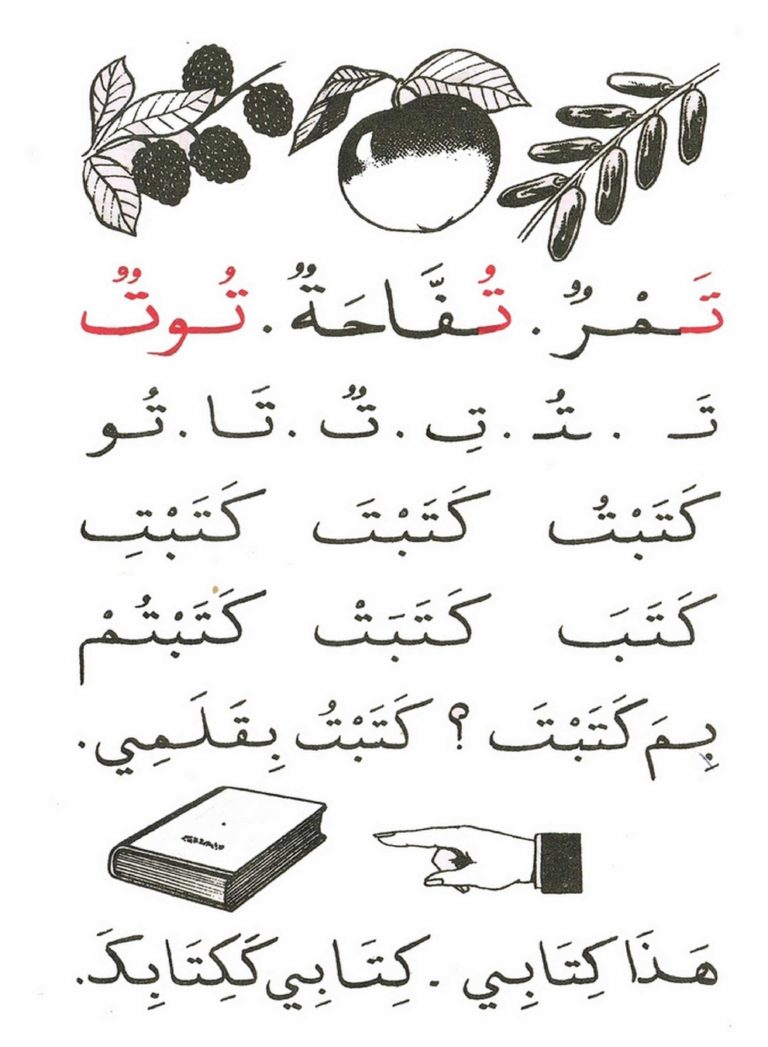 تَمْرٌ . تُفَّاحَةٌ . تُوتٌ
تَـ . ـتُـ . تِ . تٌ . تَا . تُو
كَتَبْتُ كَتَبْتَ كَتَبْتِ
كَتَبَ كَتَبَتْ كَتَبْتُمْ
بِمَ كَتَبْتَ ؟ كَتَبْتُ بِقَلَمِي .
هَذَا كِتَابِي . كِتَابِي كَكِتَابِكَ .